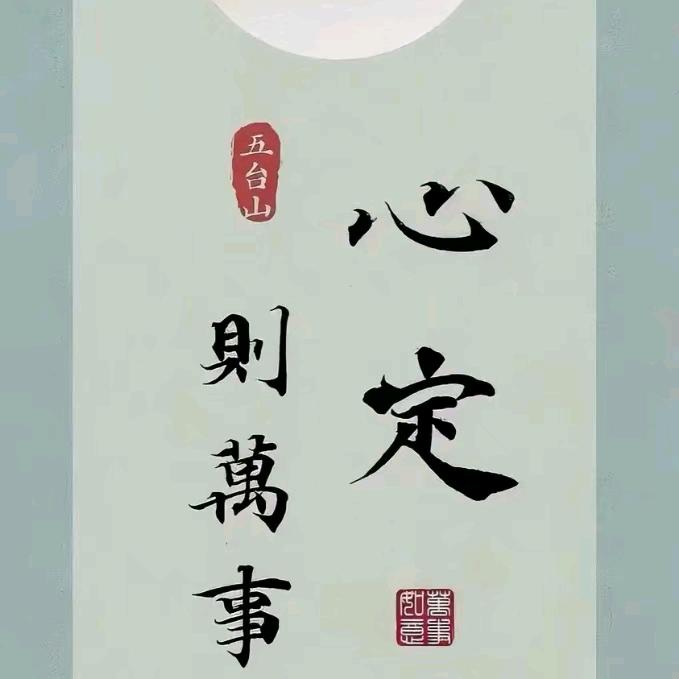 心定
萬事
如意
五台山
則萬事